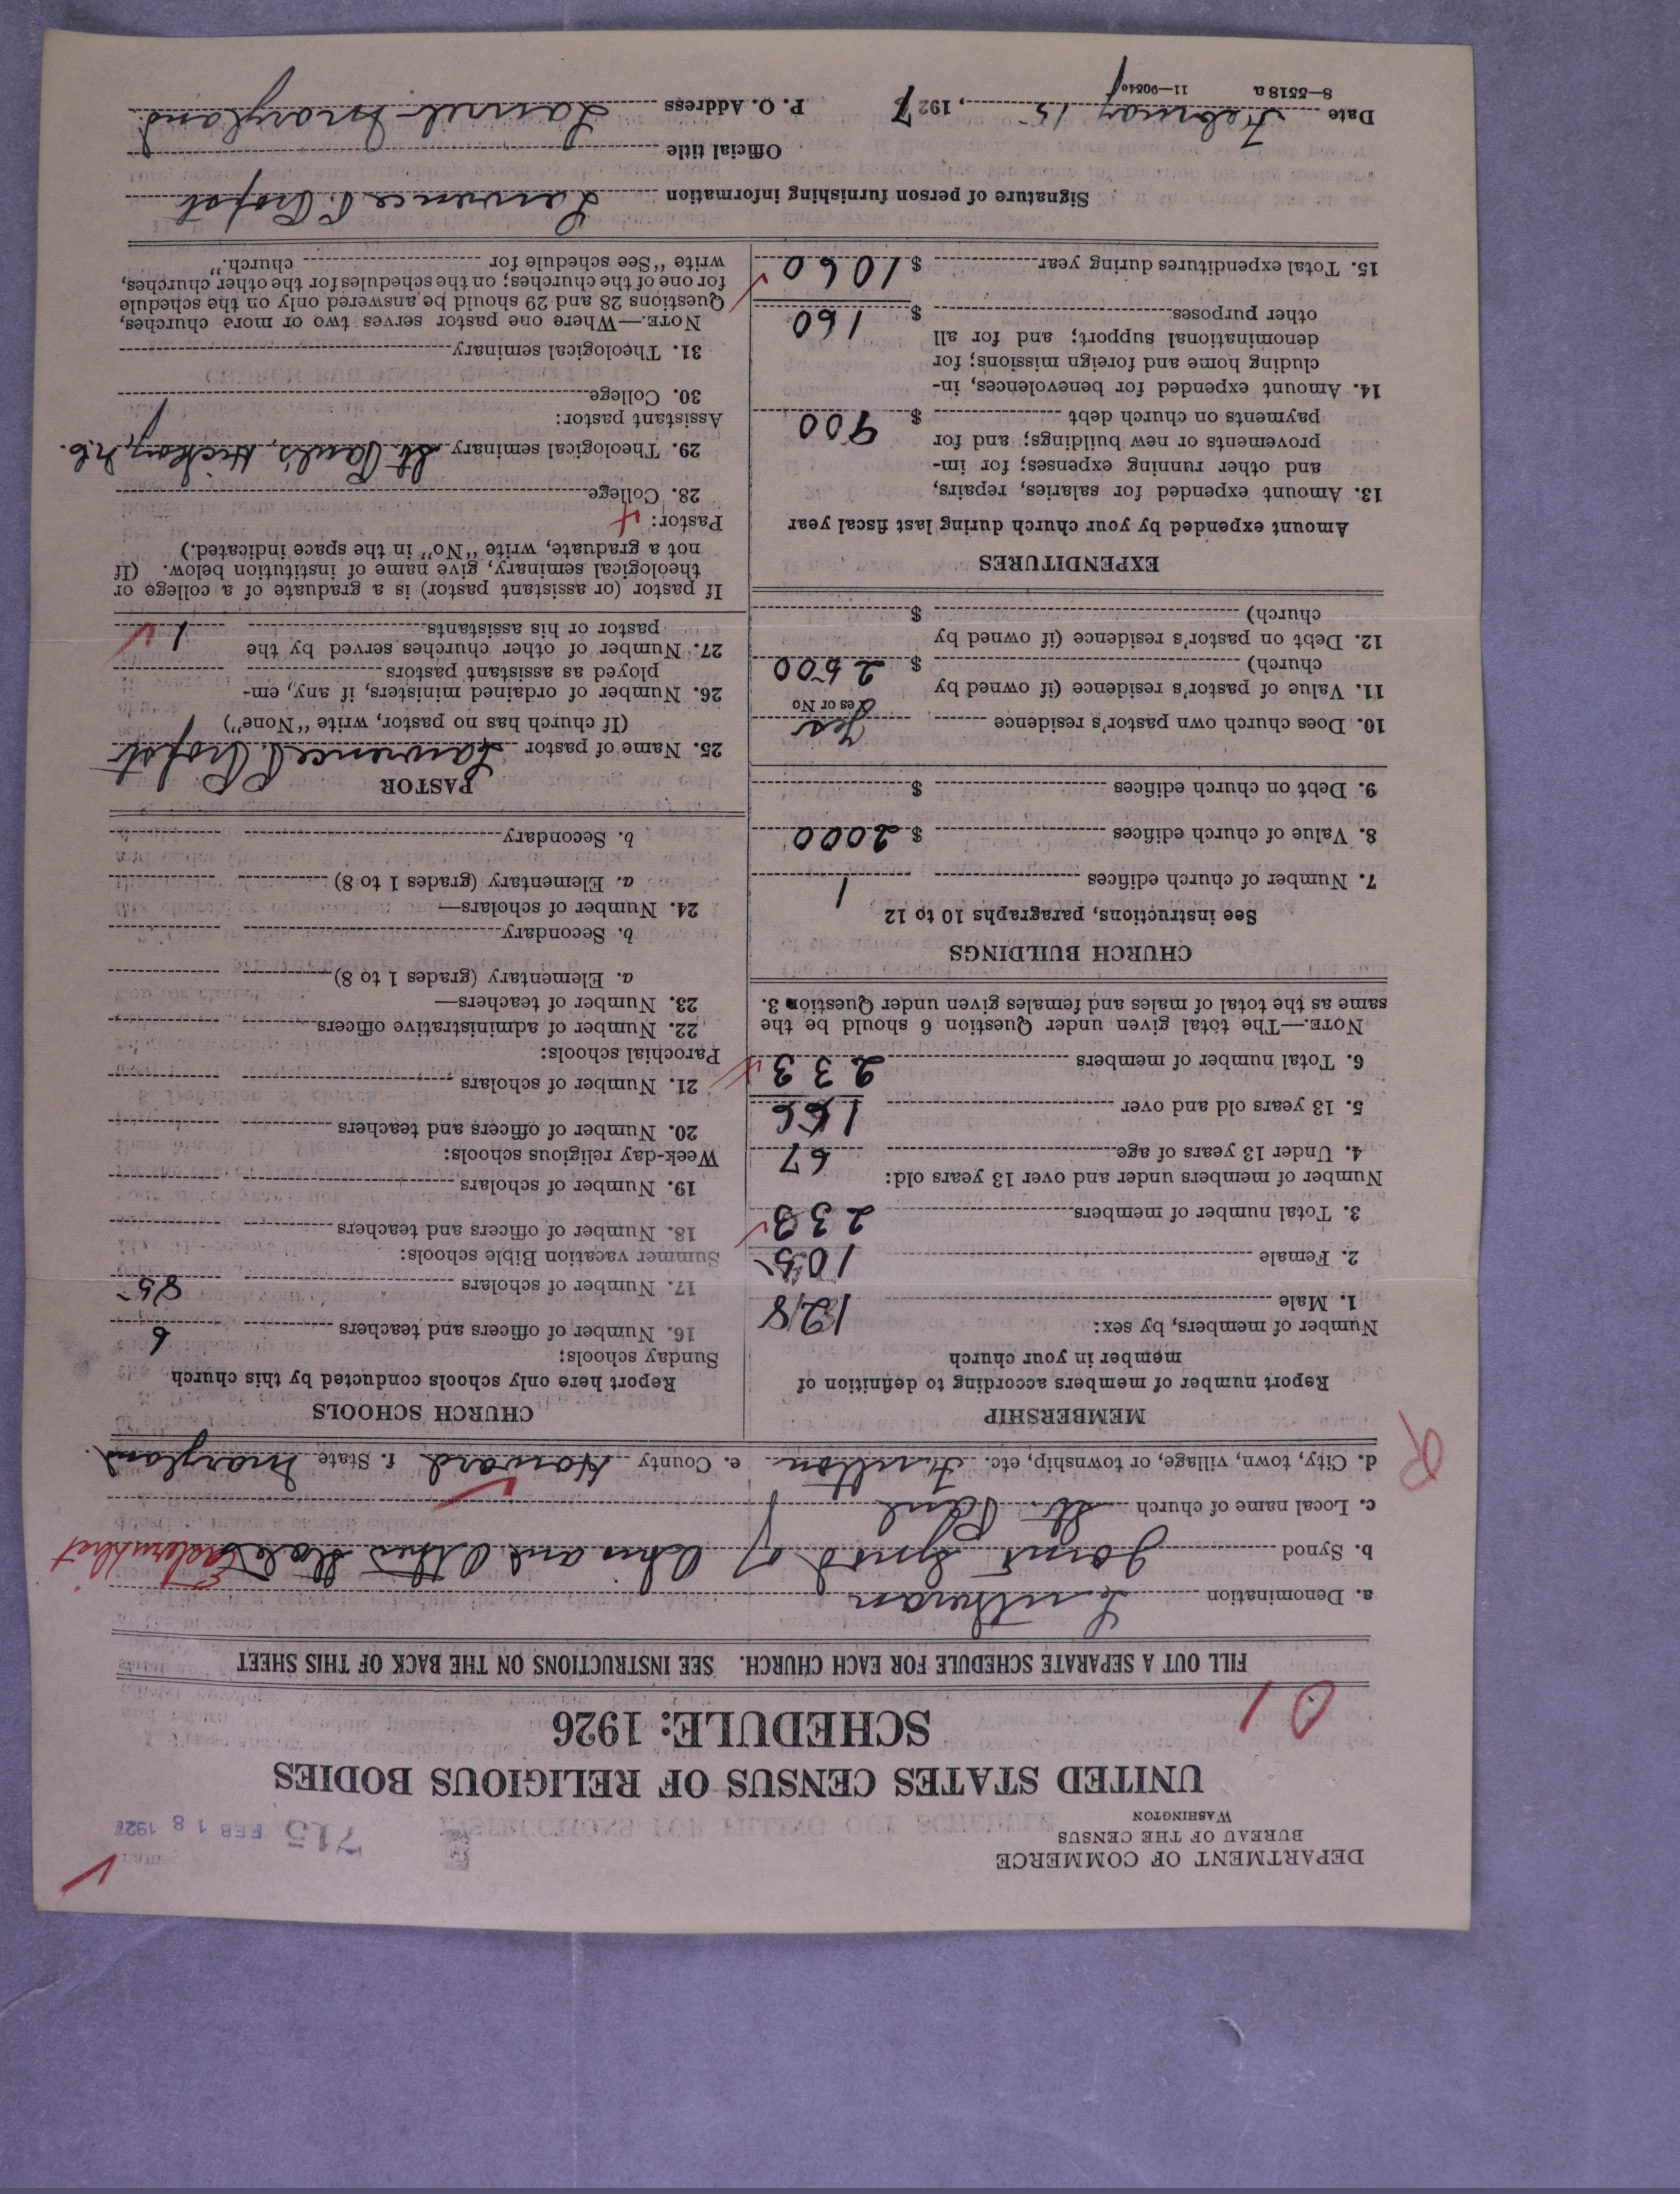 DEPARTMENT OF COMMERCE
BUREAU OF THE CENSUS
WASHINGTON
715 FEB 18 1927
UNITED STATES CENSUS OF RELIGIOUS BODIES
SCHEDULE: 1926
01
FILL OUT A SEPARATE SCHEDULE FOR EACH CHURCH. SEE INSTRUCTIONS ON THE BACK OF THIS SHEET
a. Denomination Lutheran
b. Synod Joint Synod of Ohio and Other States Eastern Dist
c. Local name of church St. Paul
d. City, town, village, or township, etc. Fulton e. County Howard f. State Maryland
MEMBERSHIP
Report number of members according to definition of
member in your church
Number of members, by sex:
1. Male 128
2. Female 105
3. Total number of members 233
Number of members under and over 13 years old:
4. Under 13 years of age 67
5. 13 years old and over 166
6. Total number of members 233
NOTE.—The total given under Question 6 should be the
same as the total of males and females given under Question 3.
CHURCH BUILDINGS
See instructions, paragraphs 10 to 12
7. Number of church edifices 1
8. Value of church edifices $ 2000
9. Debt on church edifices $
10. Does church own pastor's residence Yes
Yes or No
11. Value of pastor's residence (if owned by
church) $ 2500
12. Debt on pastor's residence (if owned by
church) $
EXPENDITURES
Amount expended by your church during last fiscal year
13. Amount expended for salaries, repairs,
and other running expenses; for im-
provements or new buildings; and for
payments on church debt $ 900
14. Amount expended for benevolences, in-
cluding home and foreign missions; for
denominational support; and for all
other purposes $ 160
15. Total expenditures during year $ 1060
CHURCH SCHOOLS
Report here only schools conducted by this church
Sunday schools:
16. Number of officers and teachers 6
17. Number of scholars 85
Summer vacation Bible schools:
18. Number of officers and teachers
19. Number of scholars
Week-day religious schools:
20. Number of officers and teachers
21. Number of scholars
Parochial schools:
22. Number of administrative officers
23. Number of teachers—
a. Elementary (grades 1 to 8)
b. Secondary
24. Number of scholars—
a. Elementary (grades 1 to 8)
b. Secondary
PASTOR
25. Name of pastor Lawrence P. Propst
(If church has no pastor, write "None")
26. Number of ordained ministers, if any, em-
ployed as assistant pastors
27. Number of other churches served by the
pastor or his assistants 1
If pastor (or assistant pastor) is a graduate of a college or
theological seminary, give name of institution below. (If
not a graduate, write "No" in the space indicated.)
Pastor:
28. College
29. Theological seminary St. Paul's, Hickory, N.C.
Assistant pastor:
30. College
31. Theological seminary
NOTE.—Where one pastor serves two or more churches,
Questions 28 and 29 should be answered only on the schedule
for one of the churches; on the schedules for the other churches,
write "See schedule for church."
Signature of person furnishing information Lawrence P. Propst
Official title
Date February 15, 1927 P. O. Address Laurel Maryland.
8—5518 a 11—9054